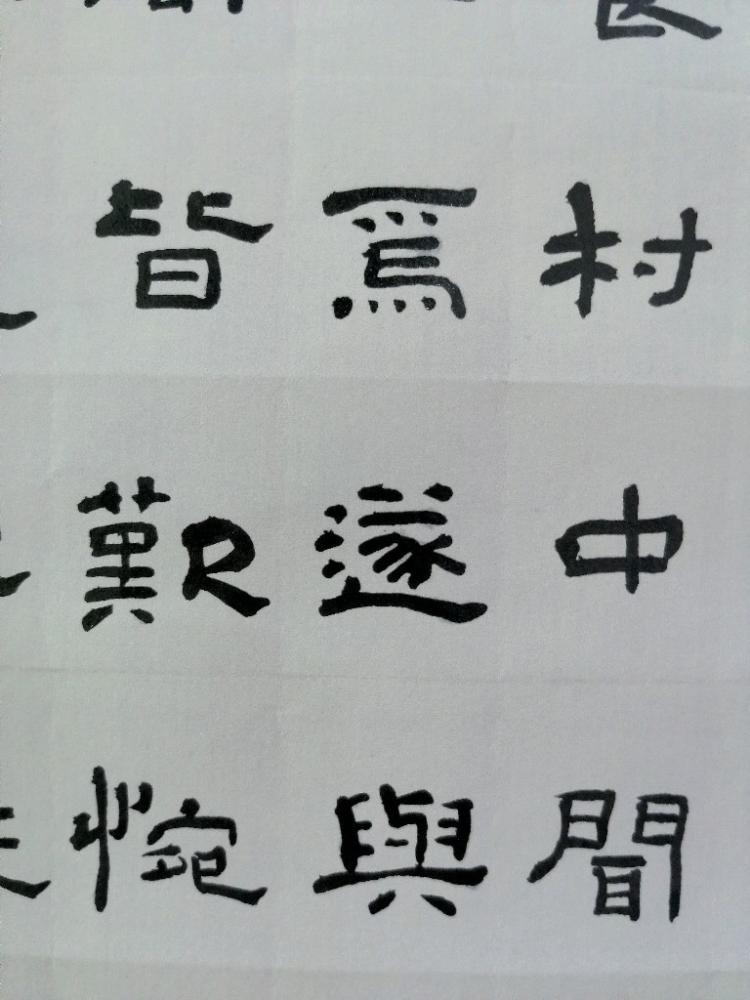 村中聞
焉遂與
皆歎惋